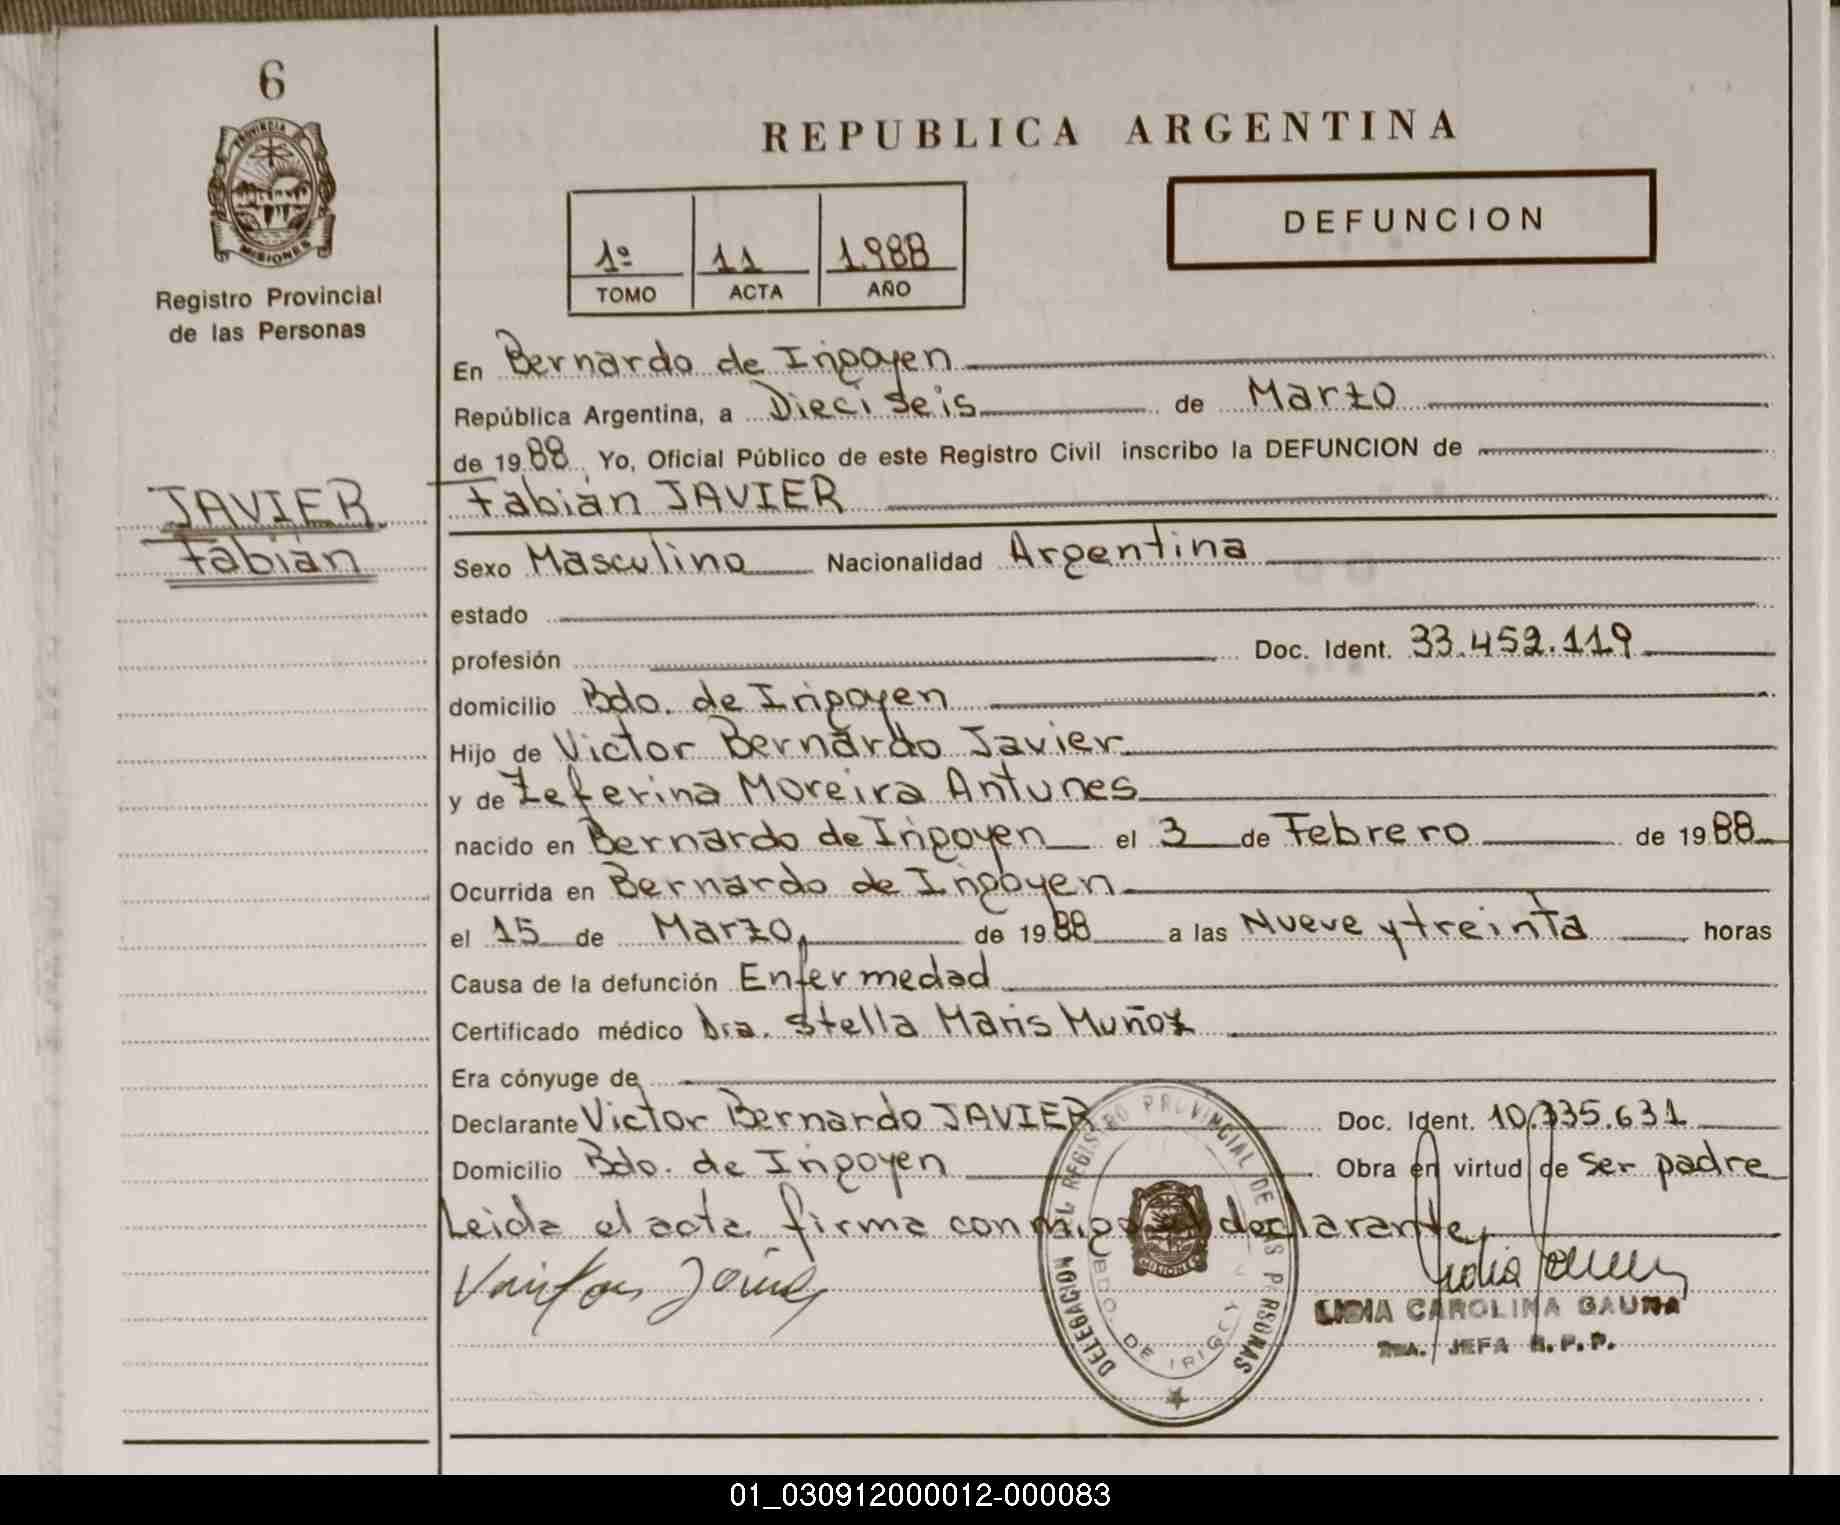 6
PROVINCIA
MISIONES
Registro Provincial
de las Personas
REPUBLICA ARGENTINA
DEFUNCION
1º 11 1988
TOMO ACTA AÑO
En Bernardo de Irigoyen
República Argentina, a Dieciseis de Marzo
de 1988 Yo, Oficial Público de este Registro Civil inscribo la DEFUNCION de
JAVIER
Fabián
Fabián JAVIER
Sexo Masculino Nacionalidad Argentina
estado
profesión Doc. Ident. 33.452.119
domicilio Bdo. de Irigoyen
Hijo de Victor Bernardo Javier
y de Zeferina Moreira Antunes
nacido en Bernardo de Irigoyen el 3 de Febrero de 1988
Ocurrida en Bernardo de Irigoyen
el 15 de Marzo, de 1988 a las Nueve y treinta horas
Causa de la defunción Enfermedad
Certificado médico Dra. Stella Maris Muñoz
Era cónyuge de
Declarante Victor Bernardo JAVIER Doc. Ident. 10.335.631
Domicilio Bdo. de Irigoyen Obra en virtud de ser padre
Leida el acta firma conmigo el declarante
DELEGACION DEL REGISTRO PROVINCIAL DE LAS PERSONAS
MISIONES
BDO. DE IRIGOYEN
LIDIA CAROLINA GAUNA
JEFA R.P.P.
01_030912000012-000083